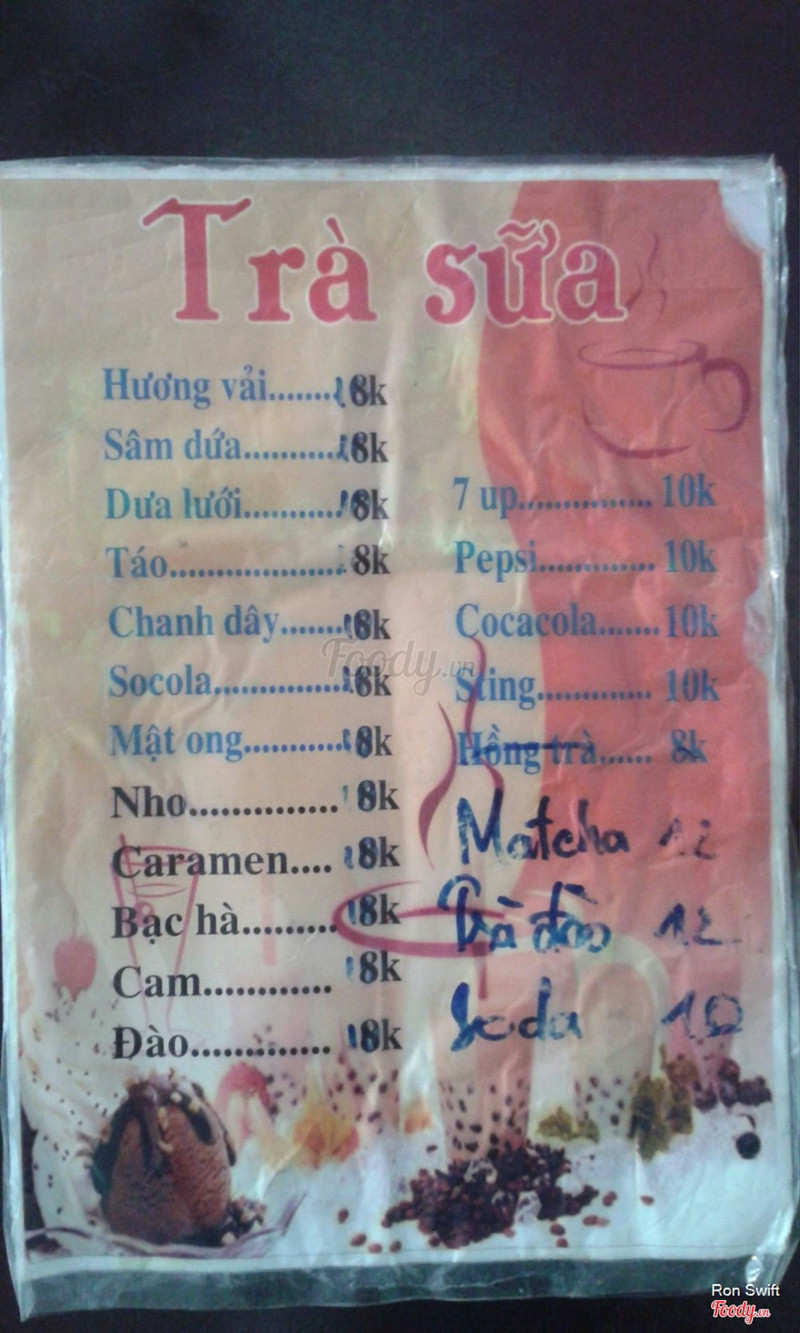 Trà sữa
Hương vải........8k
Sâm dứa...........8k
Dưa lưới...........8k
Táo....................8k
Chanh dây........8k
Socola..............8k
Mật ong............8k
Nho...............8k
Caramen....8k
Bạc hà.........8k
Cam............8k
Đào.............8k
7 up............... 10k
Pepsi............. 10k
Cocacola.......10k
Sting............. 10k
Hồng trà...... 8k
Matcha 12
Trà đào 12
Soda 10
Foody.vn
Ron Swift
Foody.vn